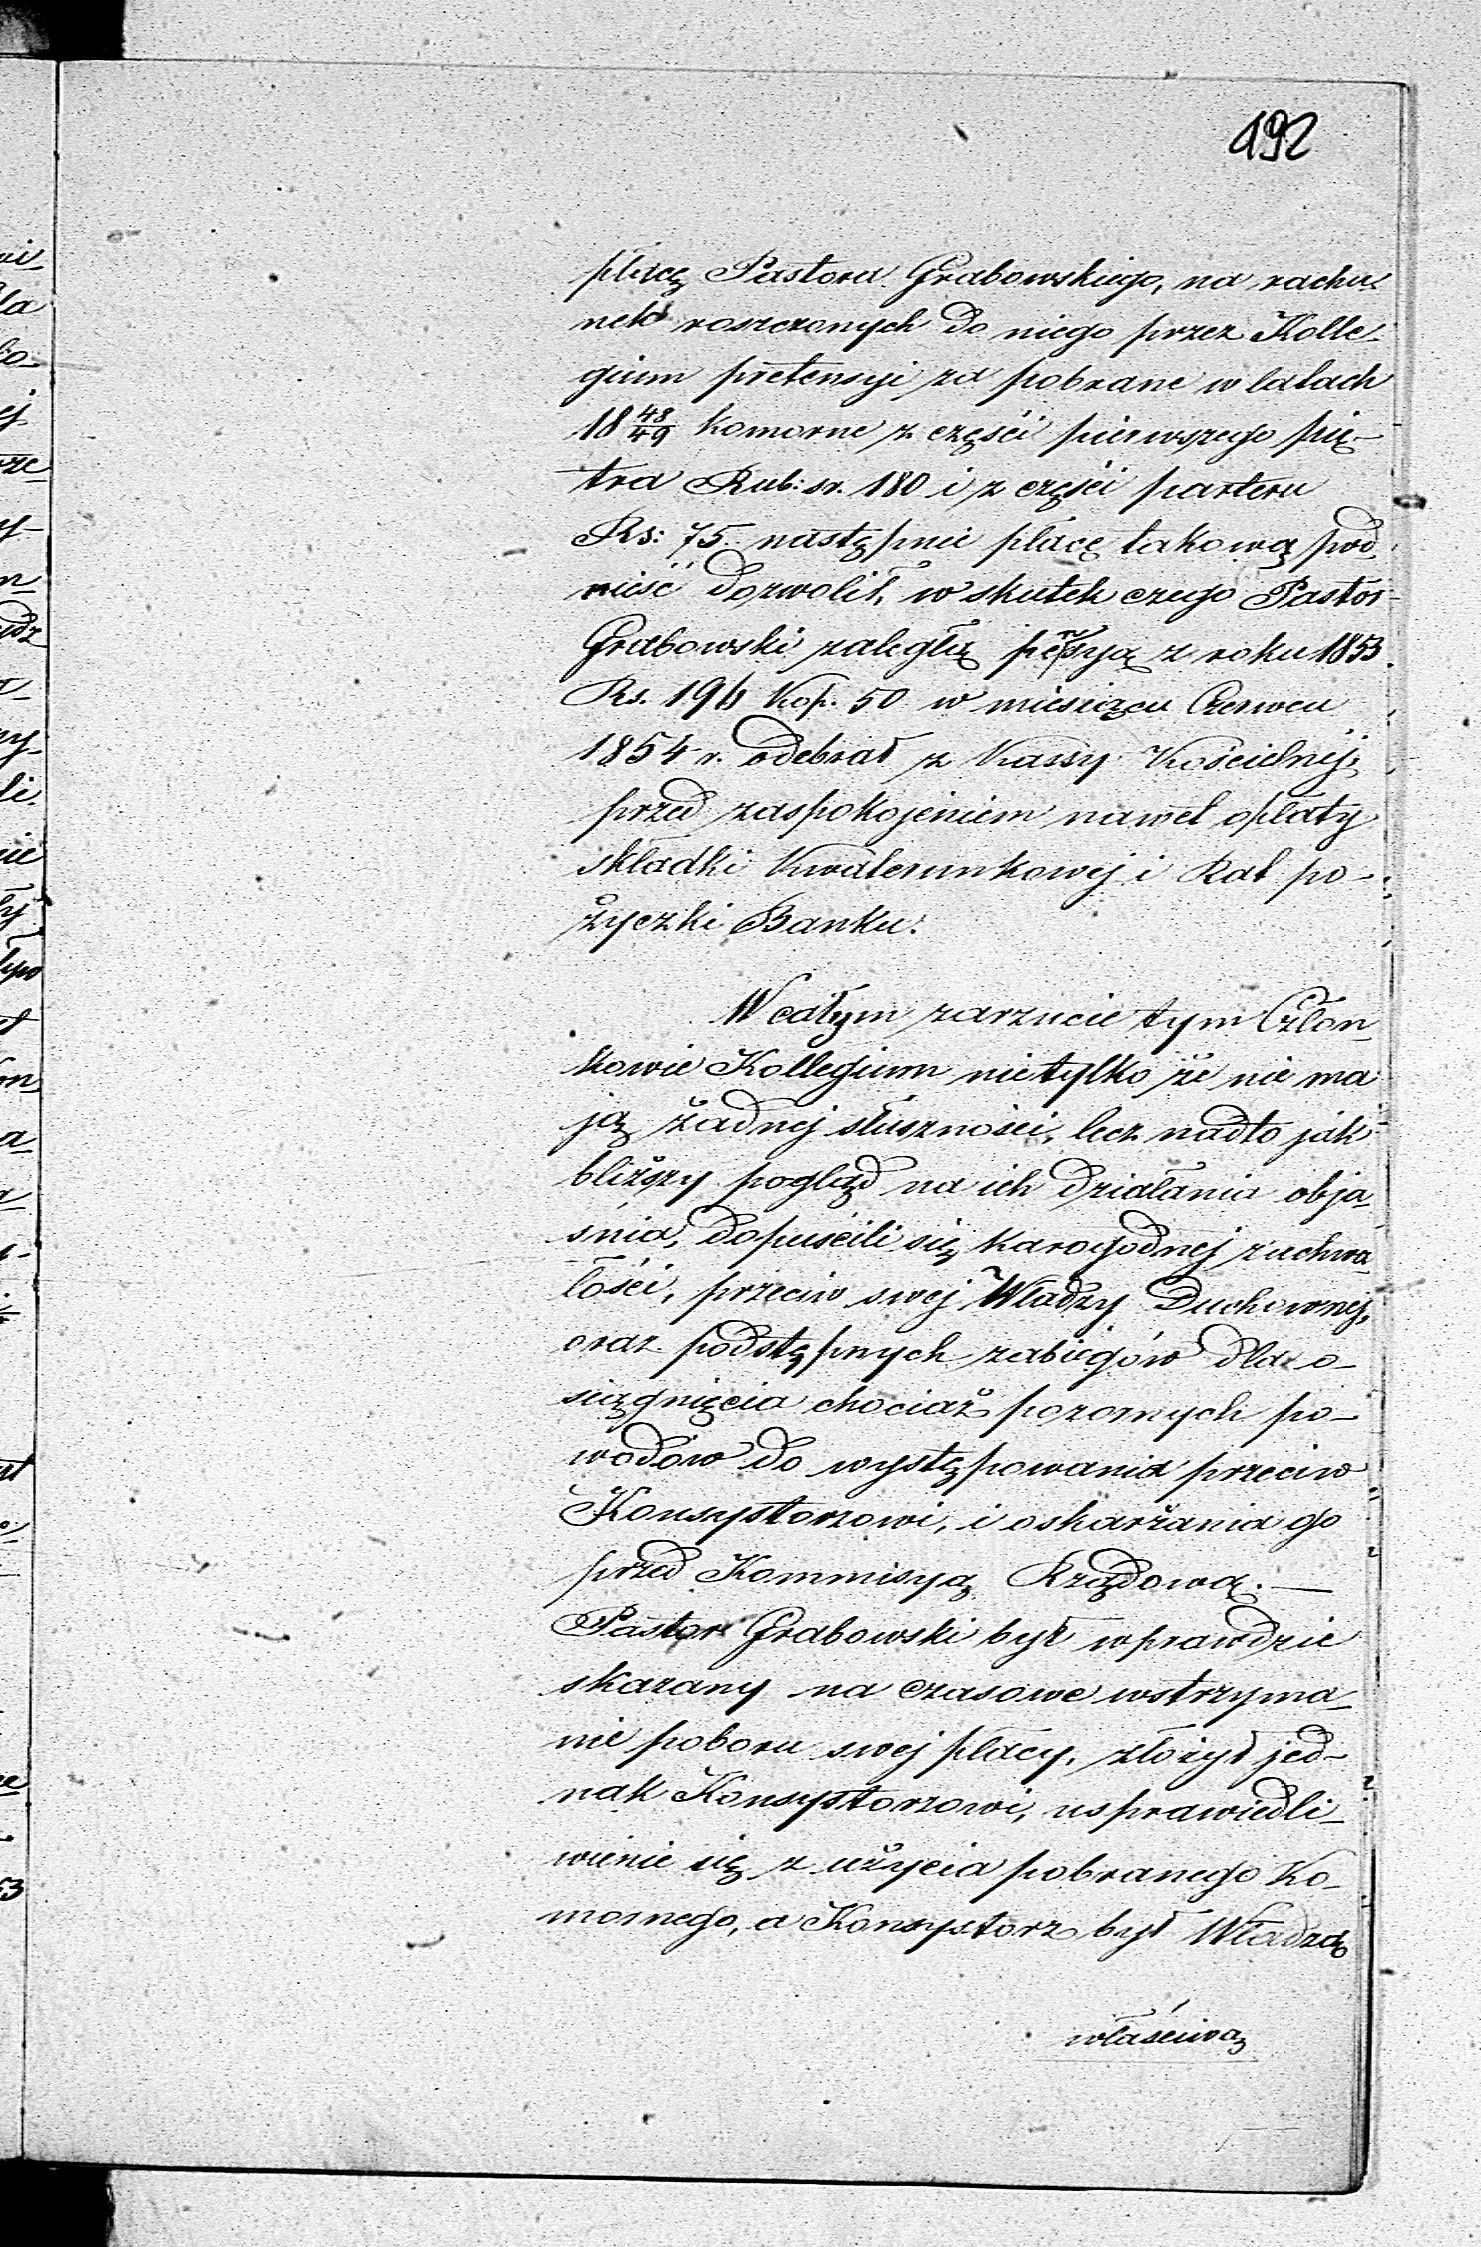 192
płacę Pastora Grabowskiego, na rachu-
nek roszczonych do niego przez Kolle-
gium pretensyi za pobrane w latach
18 48/49 komorne z części pierwszego pię-
tra Rub: sr. 180 i z części parteru
Rs: 75. następnie płacę takową pod
nieść dozwolił, w skutek czego Pastor
Grabowski zaległą pensyą z roku 1853
Rs. 194 Kop. 50 w miesiącu Czerwcu
1854 r. odebrał z Kassy Kościelnéj,
przed zaspokojeniem nawet opłaty
składki Kwaterunkowej i Rat po-
życzki Banku.
W całym zarzucie tym Człon-
kowie Kollegium nietylko że nie ma
ją żadnej słuszności, lecz nadto jak
bliższy pogląd na ich działania obja-
śnia, dopuścili się karogodnej zuchwa-
łości, przeciw swej Władzy Duchownej,
oraz podstępnych zabiegów dla o-
siągnięcia chociaż pozornych po-
wodów do występowania przeciw
Konsystorzowi, i oskarżania go
przed Kommisyą Rządową. —
Pastor Grabowski był wprawdzie
skazany na czasowe wstrzyma-
nie poboru swej płacy, złożył jed-
nak Konsystorzowi, usprawiedli-
wienie się z użycia pobranego Ko-
mornego, a Konsystorz był Władzą
właściwą